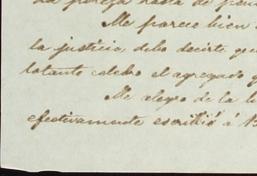 la pureza hasta de pen
Me parece bien
la justicia debo decirte que
lotanto celebro el agregado q
Me alegro de la b
efectivamente escribió á B